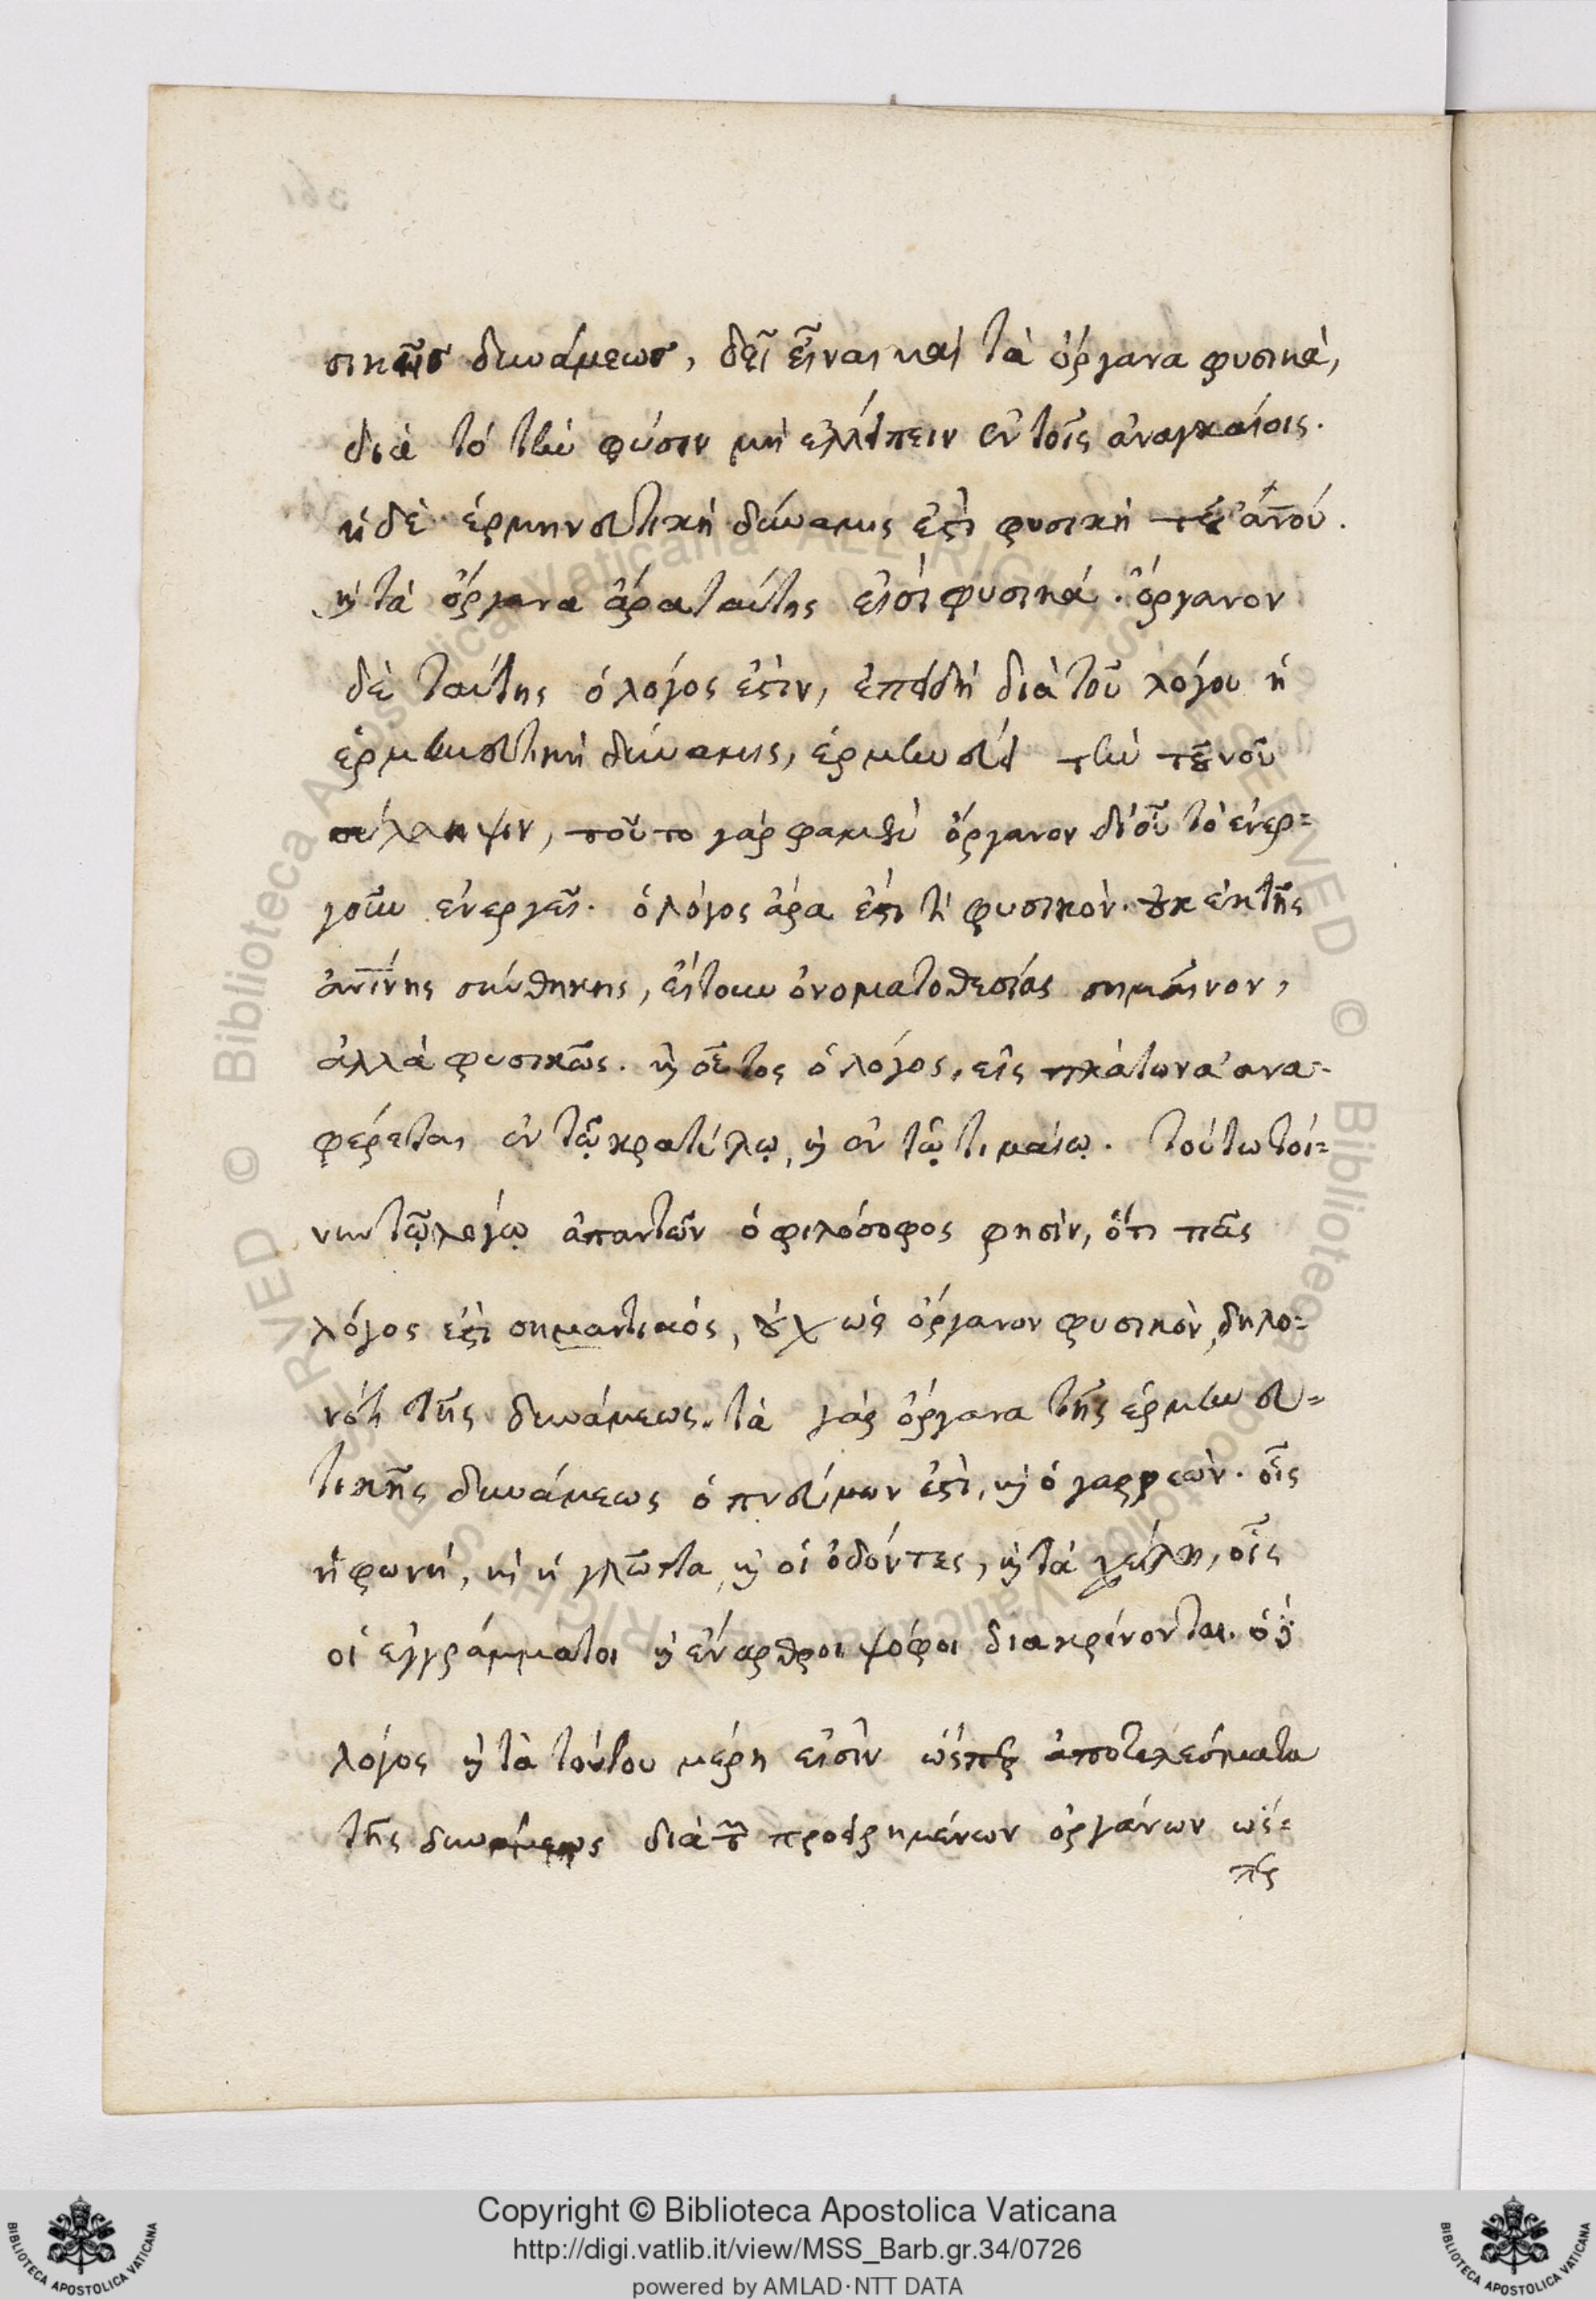 σικῆς δυνάμεως, δεῖ εἶναι καὶ τὰ ὄργανα φυσικὰ,
διὰ τὸ τὴν φύσιν μὴ ἐλλείπειν ἐν τοῖς ἀναγκαίοις.
ἡ δὲ ἑρμηνευτικὴ δύναμις ἐστὶ φυσικὴ τοῦ ἀνου.
καὶ τὰ ὄργανα ἄρα ταύτης εἰσὶ φυσικά. ὄργανον
δὲ ταύτης ὁ λόγος ἐστιν, ἐπειδὴ διὰ τοῦ λόγου ἡ
ἑρμηνευτικὴ δύναμις, ἑρμηνεύει τὴν τοῦ νοῦ
σύλληψιν, τοῦτο γάρ φαμεν ὄργανον δι' οὗ τὸ ἐνερ=
γοῦν ἐνεργεῖ. ὁ λόγος ἄρα ἐστί τι φυσικόν. οὐκ ἐκ τῆς
ἀνίνης συνθήκης, εἴτουν ὀνοματοθεσίας σημαῖνον,
ἀλλὰ φυσικῶς. καὶ οὗτος ὁ λόγος, εἰς πλάτωνα ἀνα=
φέρεται ἐν τῷ κρατύλῳ, καὶ ἐν τῷ τιμαίῳ. τούτω τοί=
νυν τῷ λόγῳ ἀπαντῶν ὁ φιλόσοφος φησὶν, ὅτι πᾶς
λόγος ἐστὶ σημαντικός, οὐχ ὡς ὄργανον φυσικὸν, δηλο=
νότι τῆς δυνάμεως. τὰ γὰρ ὄργανα τῆς ἑρμηνευ=
τικῆς δυνάμεως ὁ πνεύμων ἐστὶ, καὶ ὁ γαργρεών. οἷς
ἡ φωνή, καὶ ἡ γλῶττα, καὶ οἱ ὀδόντες, καὶ τὰ χείλη, οἷς
οἱ ἐγγράμματοι καὶ ἔναρθροι ψόφοι διακρίνονται. ὁ δὲ
λόγος καὶ τὰ τούτου μέρη εἰσὶν ὥσπερ ἀποτελέσματα
τῆς δυνάμεως διὰ τῶν προειρημένων ὀργάνων ὥσ=
περ
Copyright © Biblioteca Apostolica Vaticana
http://digi.vatlib.it/view/MSS_Barb.gr.34/0726
powered by AMLAD·NTT DATA